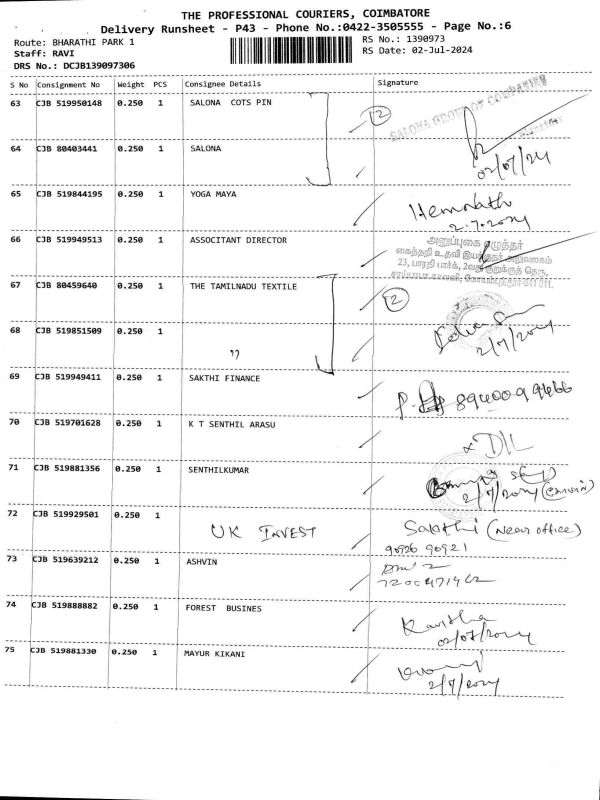 THE PROFESSIONAL COURIERS, COIMBATORE
Delivery Runsheet - P43 - Phone No.:0422-3505555 - Page No.:6
Route: BHARATHI PARK 1
RS No.: 1390973
Staff: RAVI
RS Date: 02-Jul-2024
DRS No.: DCJB139097306
S No Consignment No Weight PCS Consignee Details Signature
63 CJB 519950148 0.250 1 SALONA COTS PIN
2
SALONA GROUP OF COMPANIES
64 CJB 80403441 0.250 1 SALONA
02/07/24
65 CJB 519844195 0.250 1 YOGA MAYA
Hemnath
2.7.2024
66 CJB 519949513 0.250 1 ASSOCITANT DIRECTOR
அனுப்புகை எழுத்தர்
கைத்தறி உதவி இயக்குநர் அலுவலகம்
23, பாரதி பார்க், 2வது குறுக்குத் தெரு,
67 CJB 80459640 0.250 1 THE TAMILNADU TEXTILE
2
68 CJB 519851509 0.250 1 "
2/7/2024
69 CJB 519949411 0.250 1 SAKTHI FINANCE
70 CJB 519701628 0.250 1 K T SENTHIL ARASU
71 CJB 519881356 0.250 1 SENTHILKUMAR
2/7/2024
72 CJB 519929501 0.250 1 UK INVEST
Sakthi (Near office)
90926 90921
73 CJB 519639212 0.250 1 ASHVIN
74 CJB 519888882 0.250 1 FOREST BUSINES
Kavitha
02/07/2024
75 CJB 519881330 0.250 1 MAYUR KIKANI
2/7/2024